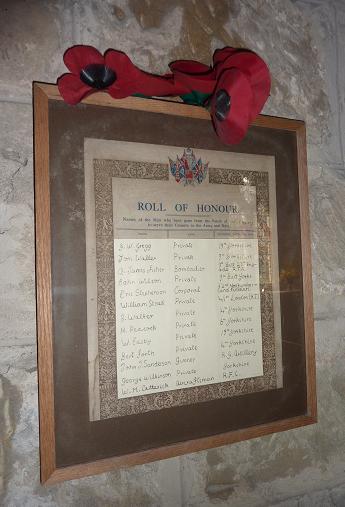 ROLL OF HONOUR
Names of the Men who have gone from the Parish of
to serve their Country in the Army and Navy
W. Gregg Private 19th Yorkshire
Tom Walker Private 9th Yorkshire
James Fisher Bombardier R.F.A.
John Wilson Private 9th East Yorks
Eric Stephenson Corporal
William Stead Private London
J. Walker Private 4th Yorkshire
H. Peacock Private 6th Yorkshire
W. Easby Private 19th Yorkshire
Bert Forth Private 4th Yorkshire
John J Sanderson Gunner R.G. Artillery
George Wilkinson Private Yorkshire
W. M. Catterick R.F.C.